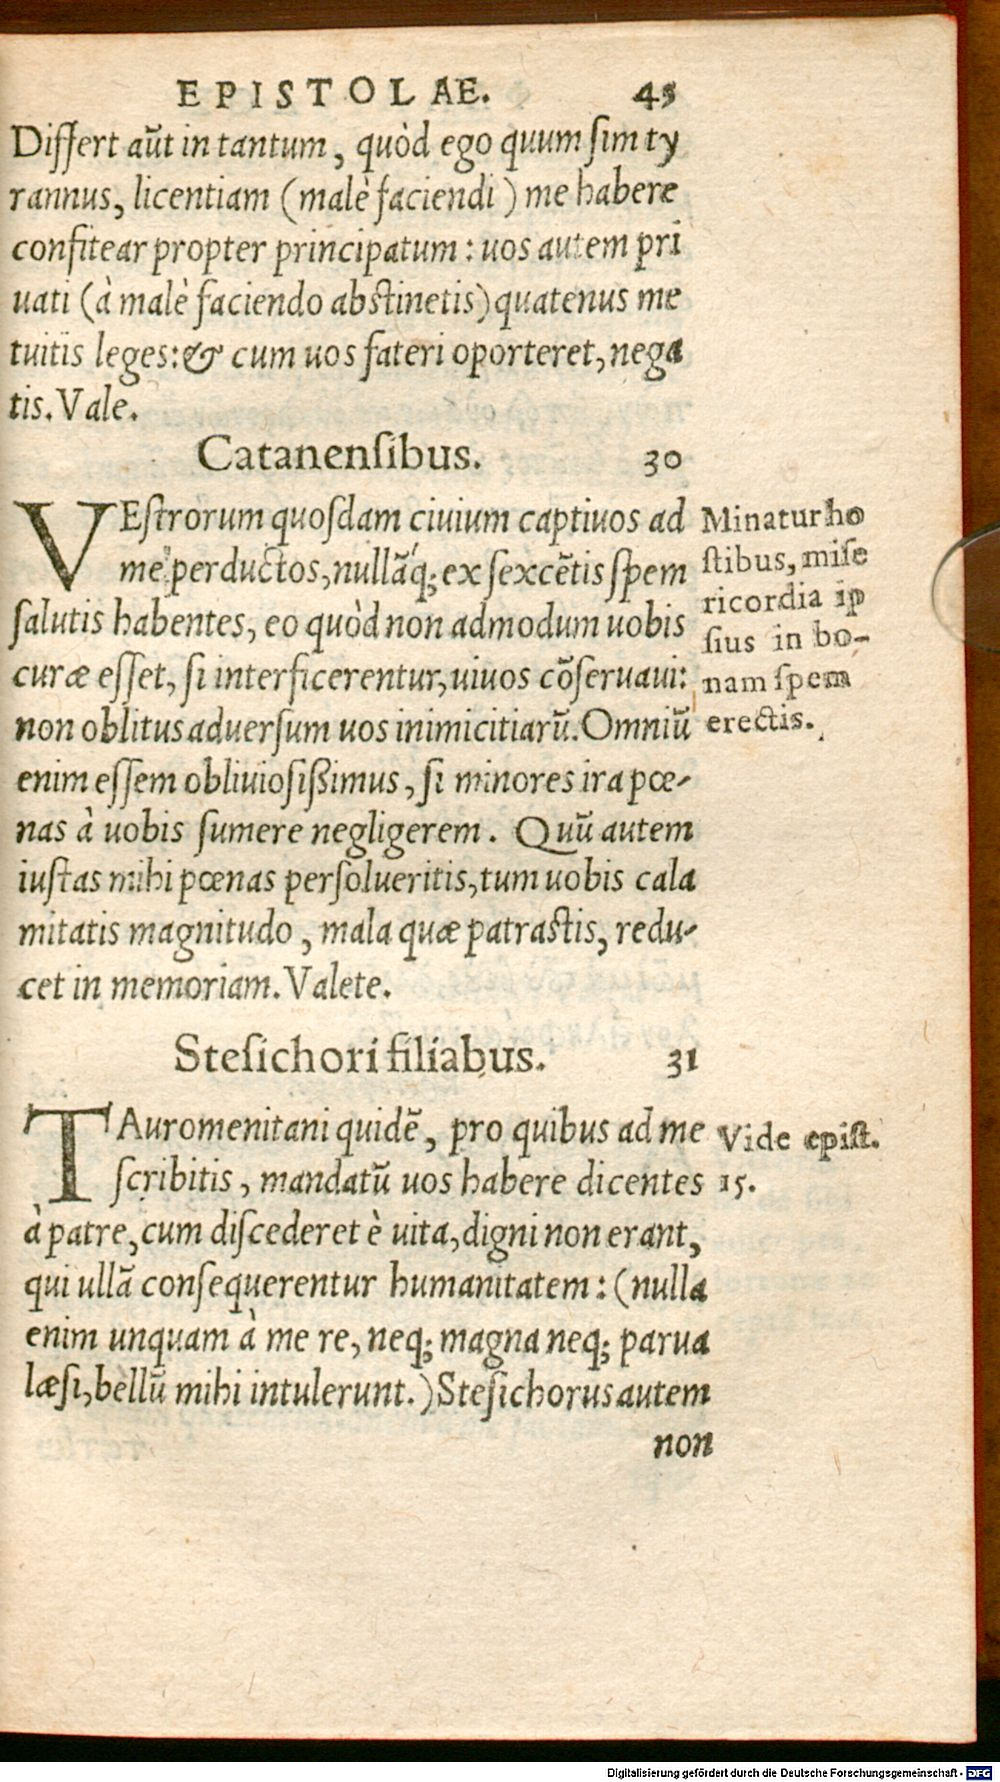 EPISTOLAE. 45
Differt aũt in tantum, quòd ego quum ſim ty
rannus, licentiam (malè faciendi) me habere
confitear propter principatum: uos autem pri
uati (à malè faciendo abſtinetis) quatenus me
tuitis leges: & cum uos fateri oporteret, nega
tis. Vale.
Catanenſibus. 30
VEſtrorum quoſdam ciuium captiuos ad
me perductos, nullāq; ex ſexcētis ſpem
ſalutis habentes, eo quòd non admodum uobis
curæ eſſet, ſi interficerentur, uiuos cōſeruaui:
non oblitus aduerſum uos inimicitiarũ. Omniũ
enim eſſem obliuioſißimus, ſi minores ira pœ-
nas à uobis ſumere negligerem. Quũ autem
iuſtas mihi pœnas perſolueritis, tum uobis cala
mitatis magnitudo, mala quæ patraſtis, redu-
cet in memoriam. Valete.
Minatur ho
ſtibus, miſe
ricordia ip
ſius in bo-
nam ſpem
erectis.
Steſichori filiabus. 31
TAuromenitani quidē, pro quibus ad me
ſcribitis, mandatũ uos habere dicentes
à patre, cum diſcederet è uita, digni non erant,
qui ullā conſequerentur humanitatem: (nulla
enim unquam à me re, neq; magna neq; parua
læſi, bellũ mihi intulerunt.) Steſichorus autem
non
Vide epiſt.
15.
Digitalisierung gefördert durch die Deutsche Forschungsgemeinschaft - DFG